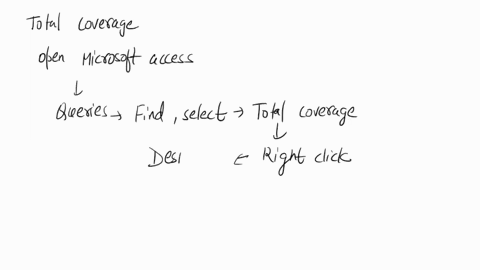 Total coverage
open Microsoft access
↓
Queries → Find, select → Total coverage
↓
Desi ← Right click